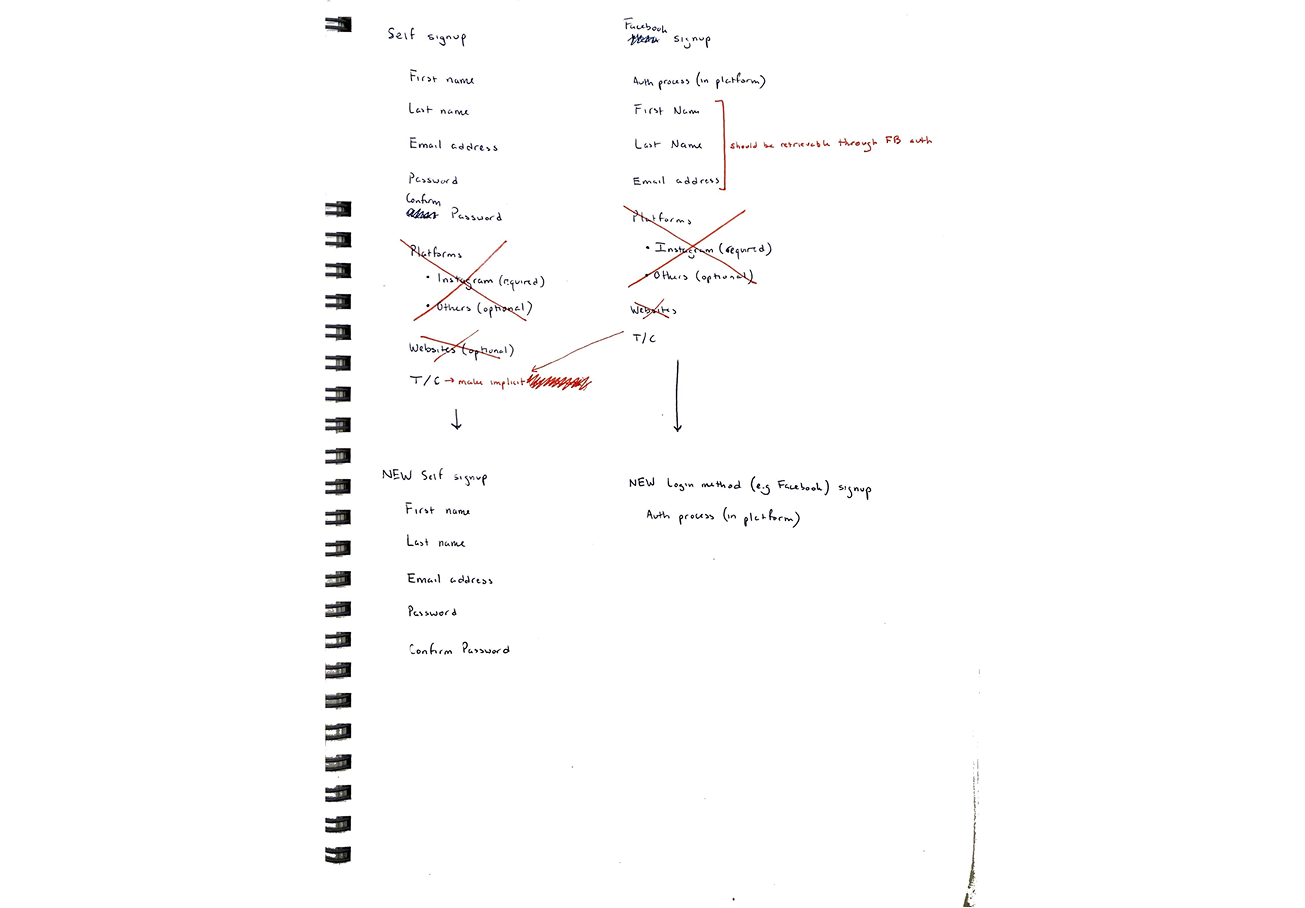 Self signup
First name
Last name
Email address
Password
Confirm
Password
Platforms
• Instagram (required)
• Others (optional)
Websites (optional)
T/C → make implicit
Facebook
signup
Auth process (in platform)
First Name
Last Name
Email address
should be retrievable through FB auth
Platforms
• Instagram (required)
• Others (optional)
Websites
T/C
NEW Self signup
First name
Last name
Email address
Password
Confirm Password
NEW Login method (e.g Facebook) signup
Auth process (in platform)